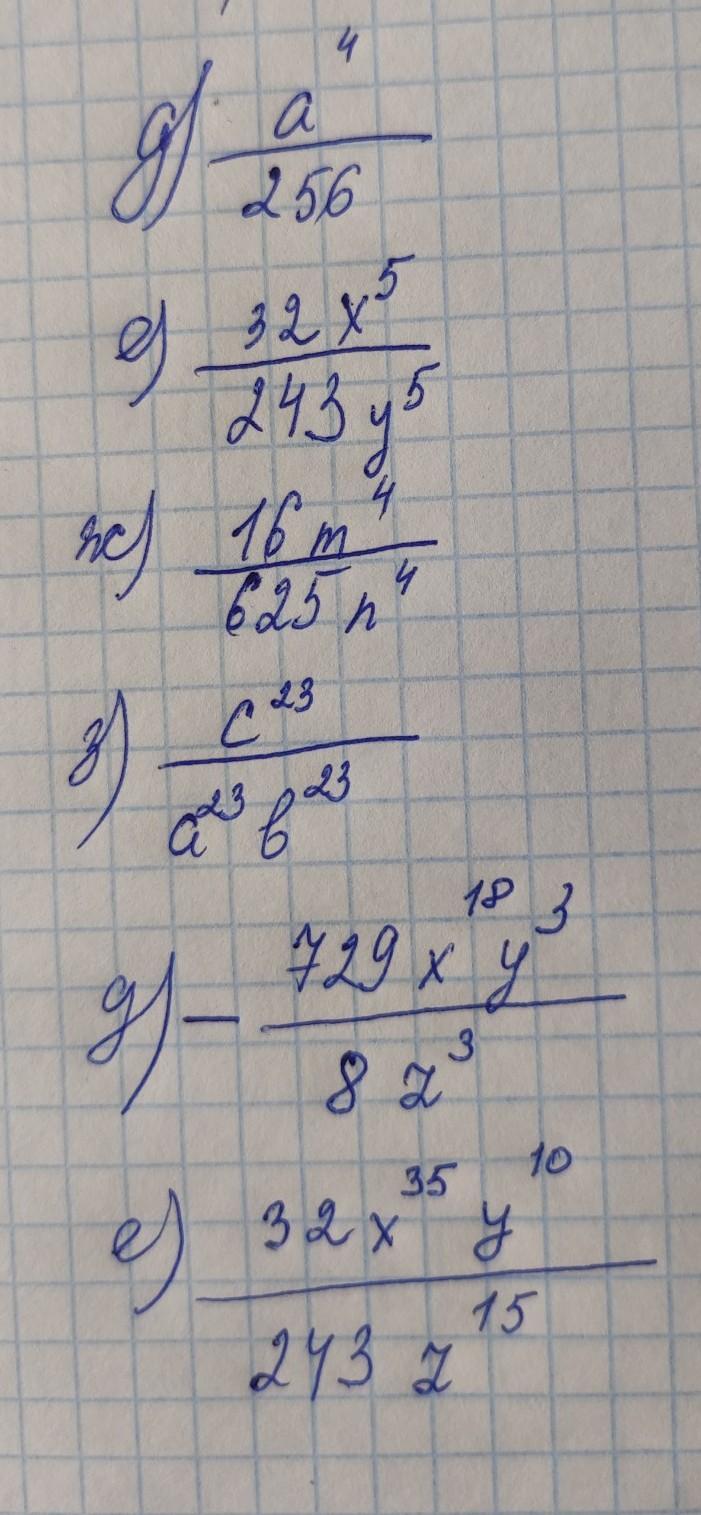 д) a⁴/256
е) 32x⁵/243y⁵
ж) 16m⁴/625n⁴
з) c²³/a²³b²³
д) – 729x¹⁸y³/8z³
е) 32x³⁵y¹⁰/243z¹⁵